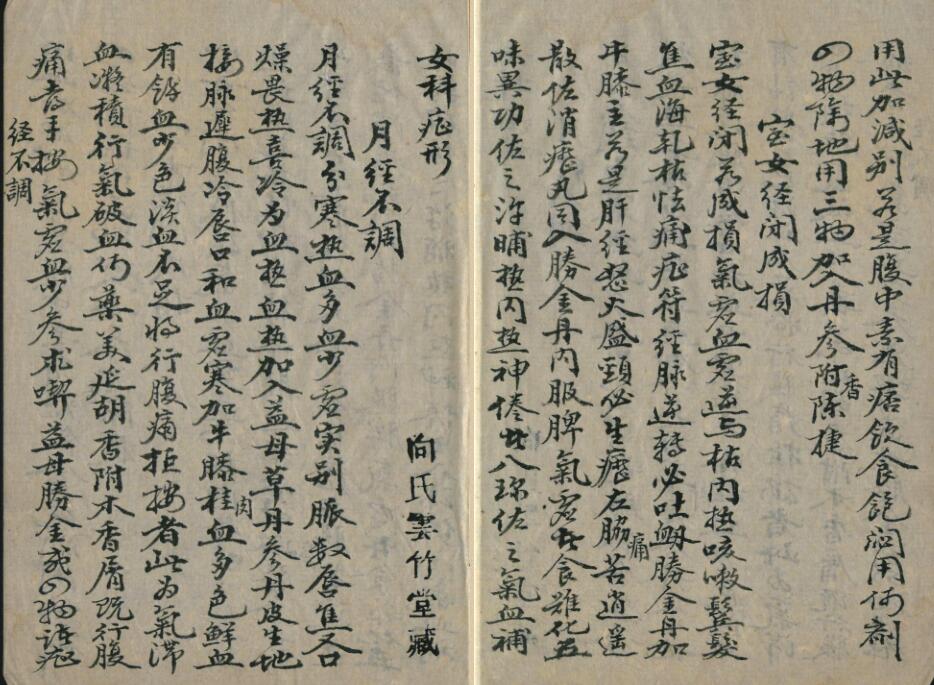 用此加減别若是腹中素有痞飲食飽闷用何剤
四物除地用三物加入丹參香附陈捷
室女经闭成損
室女经闭若成損氣虚血虚逆与枯内热咳嗽鬂髮
焦血海乾枯怯痛症符经脉逆轉必吐衂勝金丹加
牛膝主若是肝经怒火盛頸必生癧左脇痛若逍遥
散佐消癧丸同入勝金丹内服脾氣虚者食難化五
味異功佐之汗晡热内热神倦者八珎佐之氣血補
女科症形
向氏雲竹堂藏
月经不調
月经不調分寒热血多血少虚实别脈数唇焦又口
燥畏热喜冷为血热血热加入益母草丹參丹皮生地
接脉遲腹冷唇口和血虚寒加牛膝桂肉血多色鮮血
有餘血少色淡血不足将行腹痛拒按者此为氣滞
血凝積行氣破血何藥美延胡香附木香屑既行腹
痛喜手按氣虚血少參术啣益母勝金或四物諸症
经不調